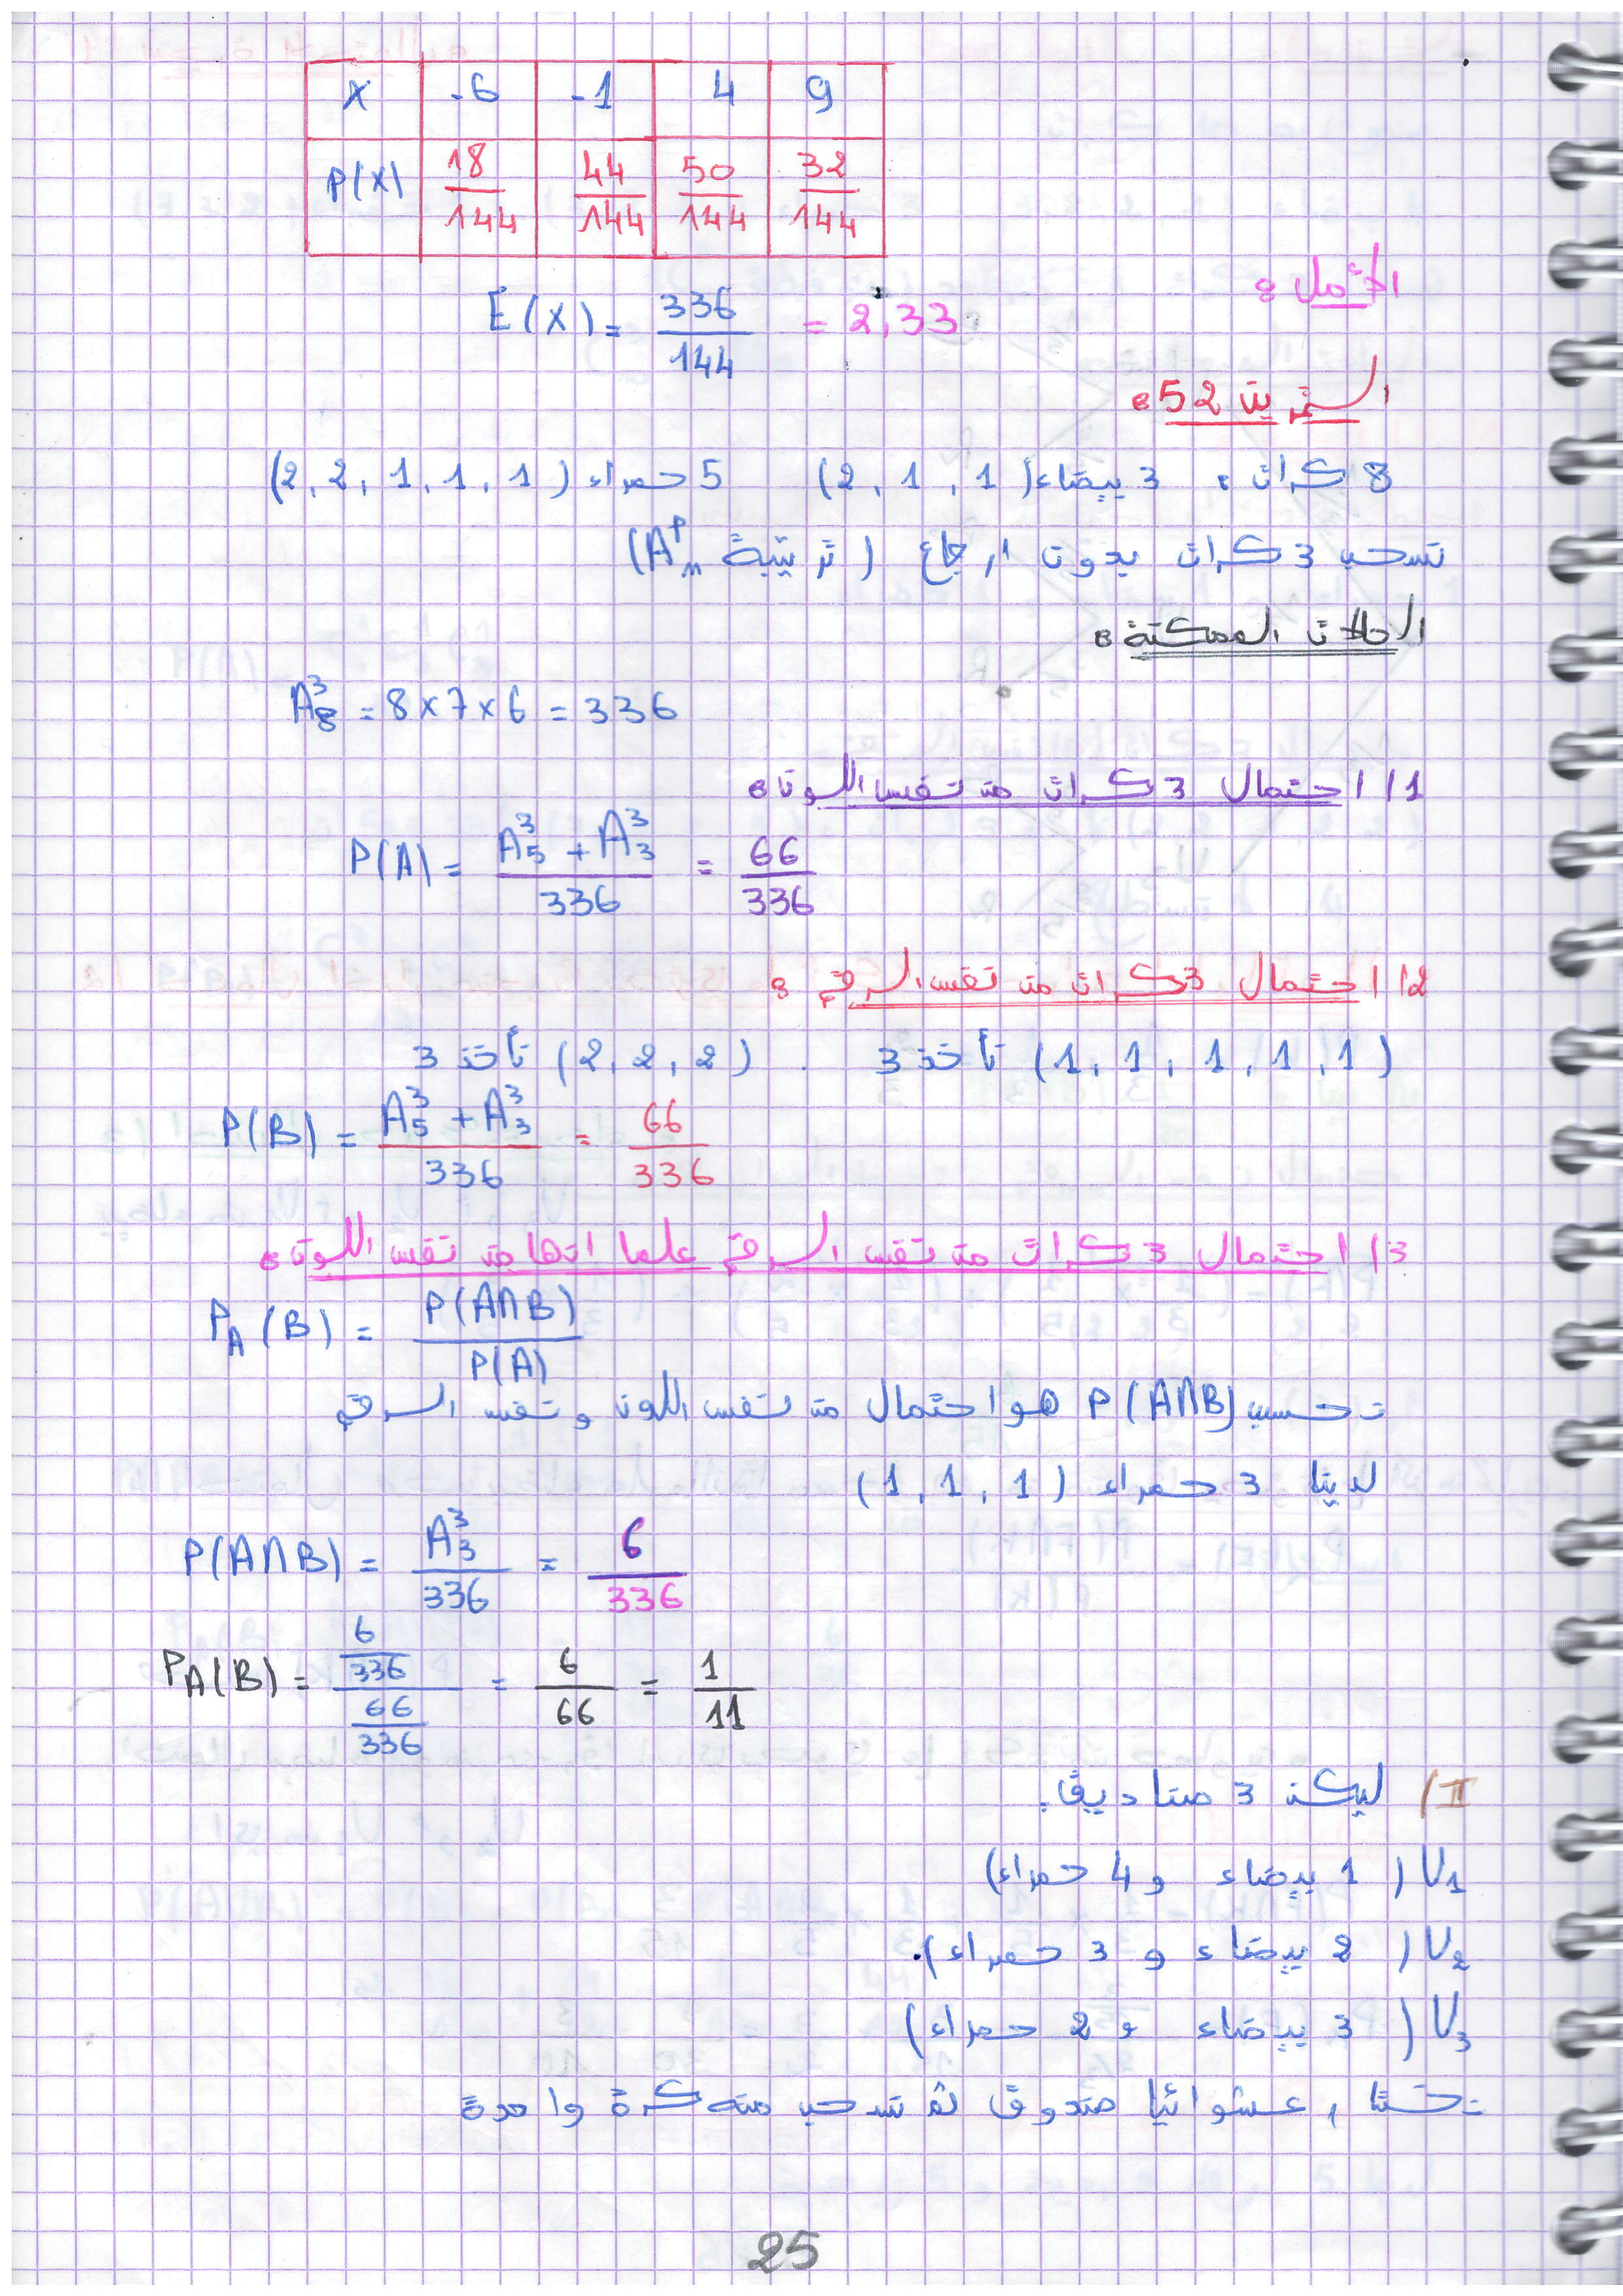 X -6 -1 4 9
P(X) 18/144 44/144 50/144 32/144
الأمل :
E(X) = 336/144 = 2,33
التمرين 52 :
8 كرات : 3 بيضاء (1, 1, 2) 5 حمراء (1, 1, 1, 2, 2)
نسحب 3 كرات بدون ارجاع (ترتيبة Aₙᵖ)
الحالات الممكنة :
A₈³ = 8 × 7 × 6 = 336
1/ احتمال 3 كرات من نفس اللون :
P(A) = (A₅³ + A₃³)/336 = 66/336
2/ احتمال 3 كرات من نفس الرقم :
(1, 1, 1, 1, 1) نأخذ 3 . (2, 2, 2) نأخذ 3
P(B) = (A₅³ + A₃³)/336 = 66/336
3/ احتمال 3 كرات من نفس الرقم علما انها من نفس اللون :
P_A(B) = P(A∩B)/P(A)
نحسب P(A∩B) هو احتمال من نفس اللون و نفس الرقم
لدينا 3 حمراء (1, 1, 1)
P(A∩B) = A₃³/336 = 6/336
P_A(B) = (6/336)/(66/336) = 6/66 = 1/11
II/ ليكن 3 صناديق.
U₁ (1 بيضاء و 4 حمراء)
U₂ (2 بيضاء و 3 حمراء).
U₃ (3 بيضاء و 2 حمراء)
نختار عشوائيا صندوق ثم نسحب منه كرة واحدة
25